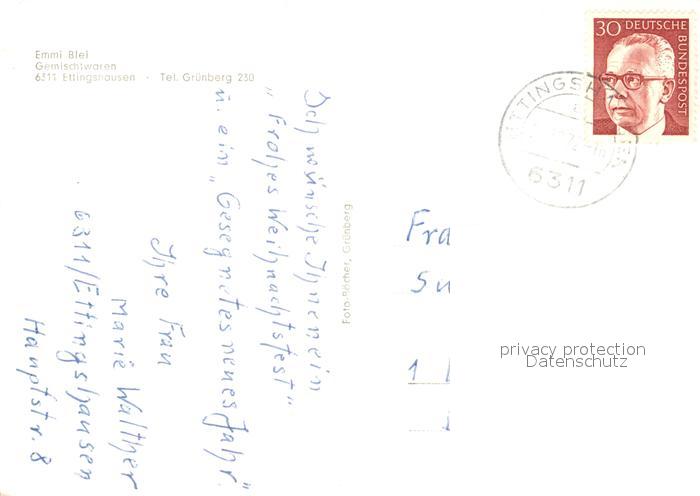 Emmi Blei
Gemischtwaren
6311 Ettingshausen · Tel. Grünberg 230
Ich wünsche Ihnen ein
"Frohes Weihnachtsfest"
u. ein "Gesegnetes neues Jahr".
Ihre Frau
Marie Walther
6311/Ettingshausen
Hauptstr. 8
Foto-Röcher, Grünberg
30 DEUTSCHE
BUNDESPOST
ETTINGSHAUSEN
6311
Fra
Su
1
privacy protection
Datenschutz